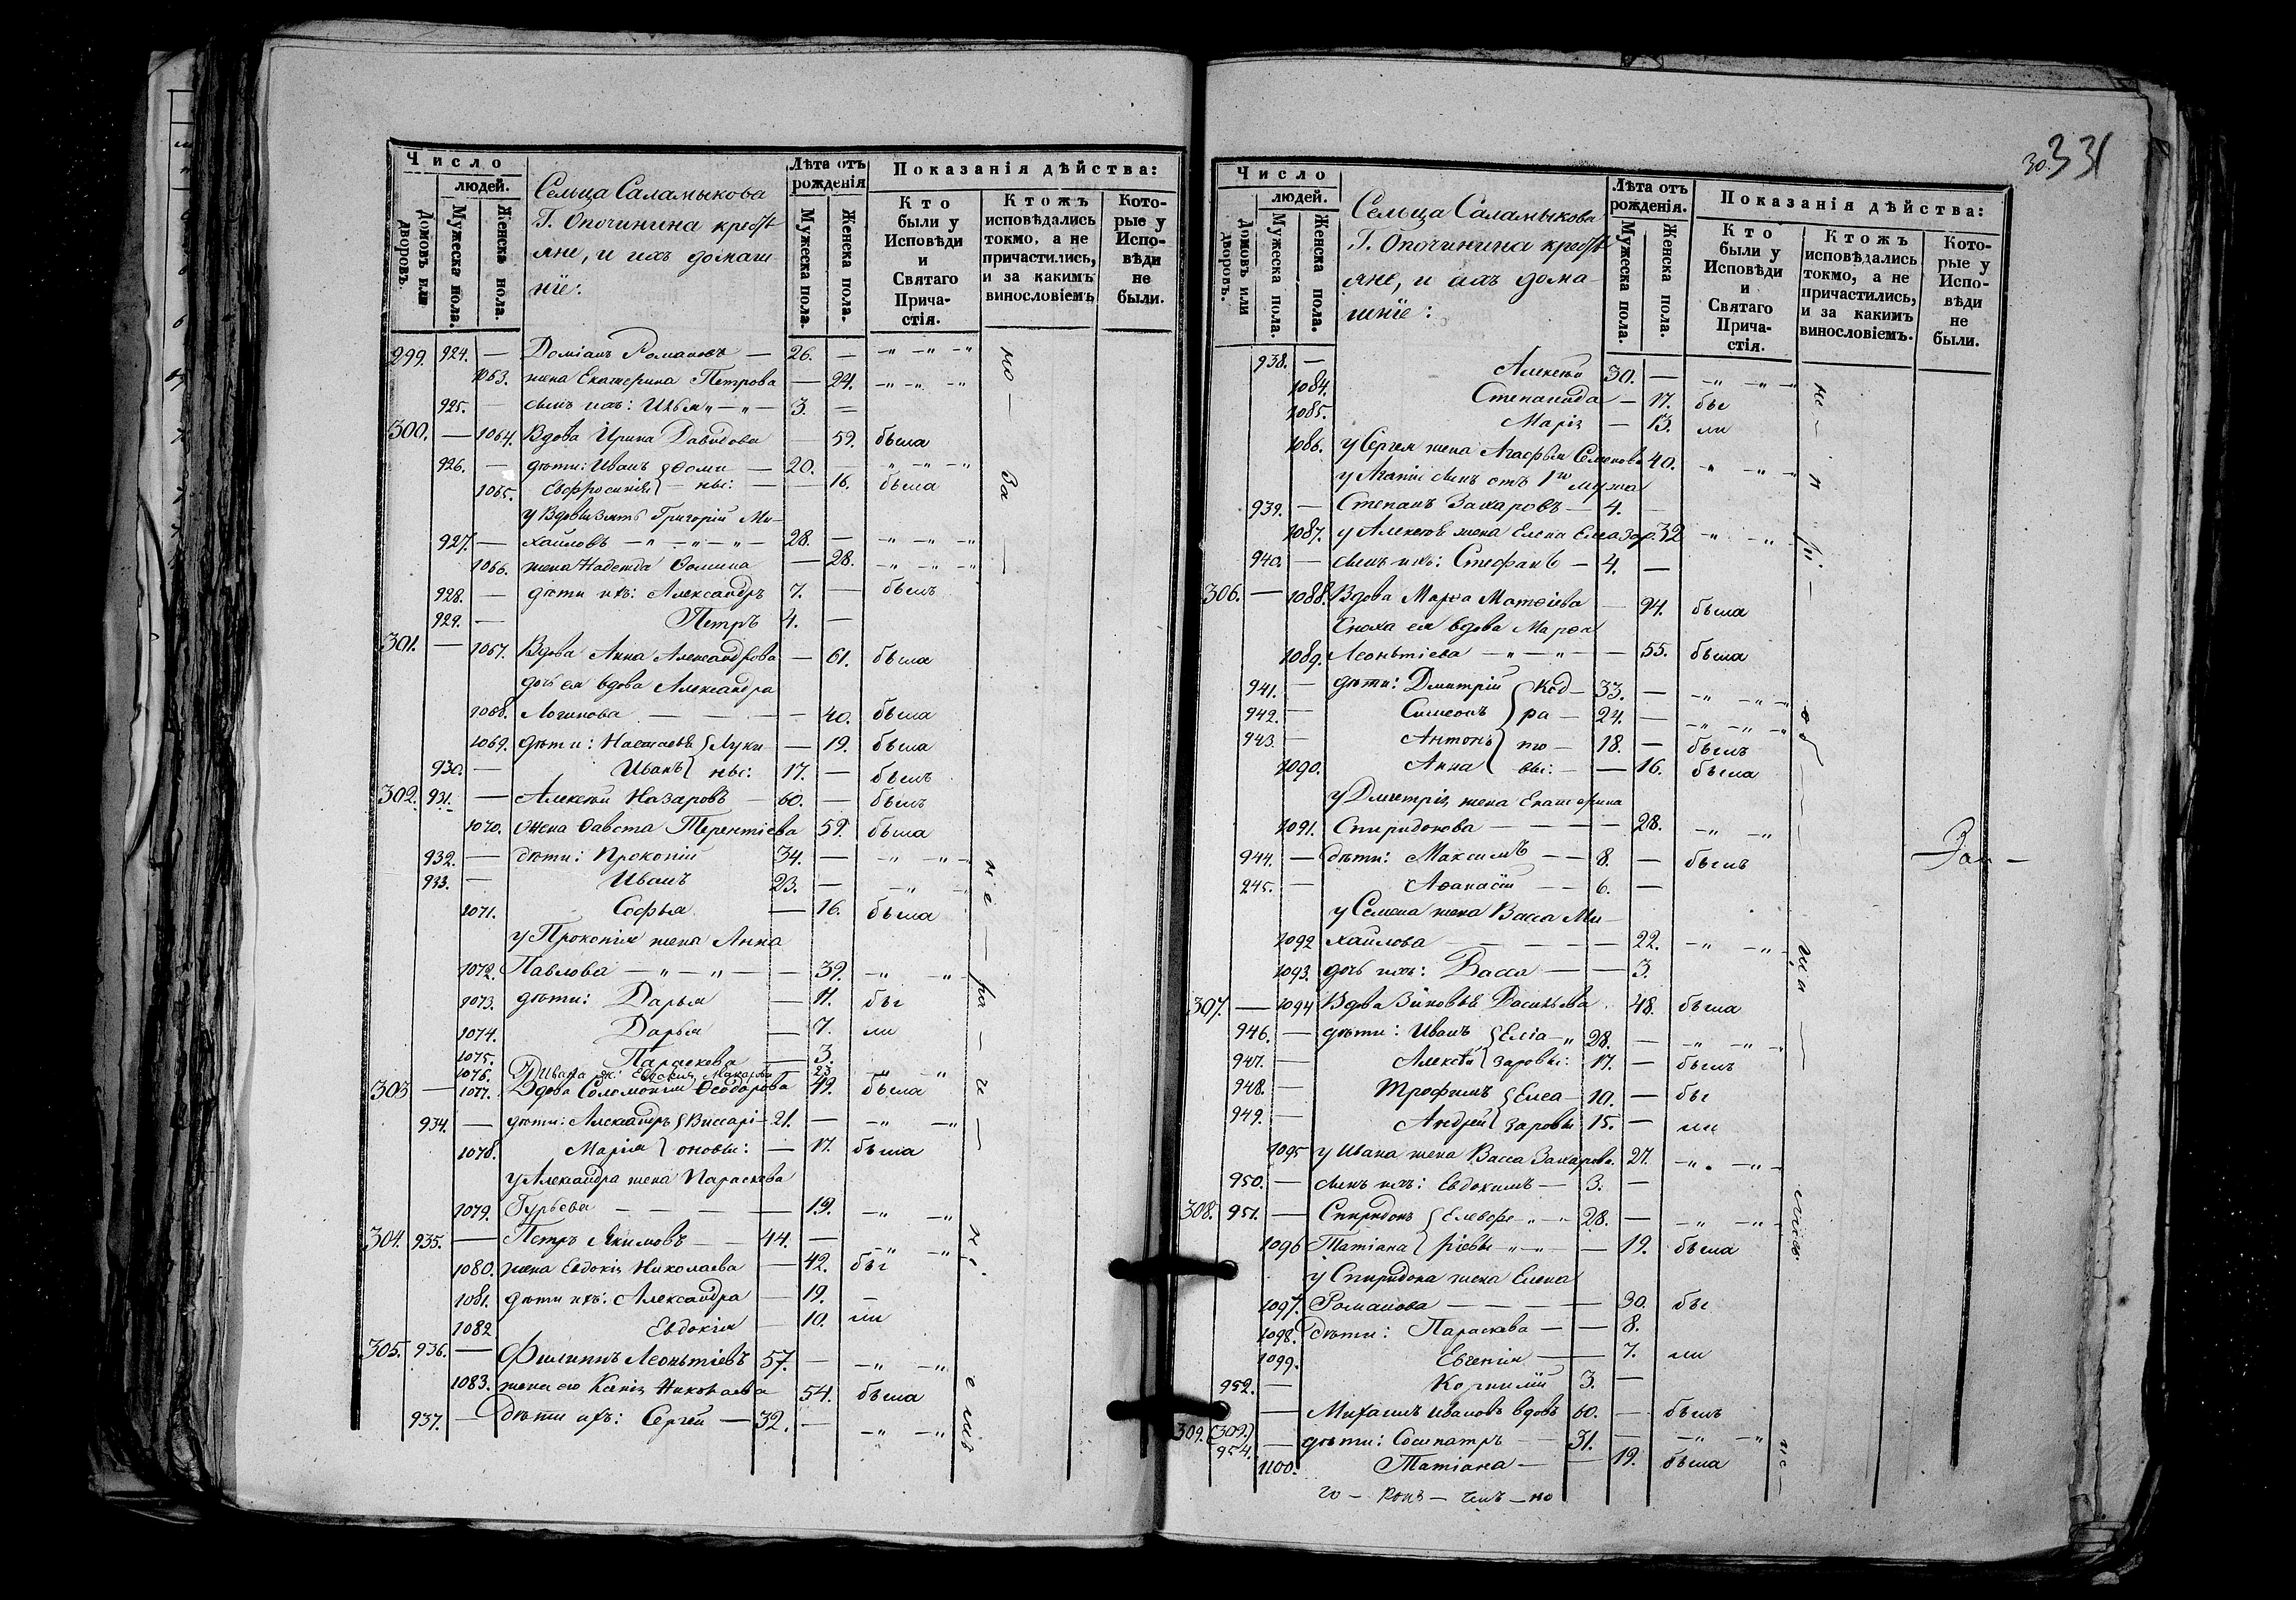 Число
людей.
Домовъ или дворовъ.
Мужеска пола.
Женска пола.
Сельца Саламыкова
Г. Опочинина крестъ
яне, и ихъ домаш
ніе:
Лѣта отъ рожденія
Мужеска пола.
Женска пола.
Показанія дѣйства:
Кто были у Исповѣди и Святаго Причастія.
Ктожъ исповѣдались токмо, а не причастились, и за какимъ винословіемъ
Которые у Исповѣди не были.
299. 924. — Доміанъ Романовъ — 26. — -„ -„ -„
1063. жена Екатерина Петрова — 24. -„ -„ -„
925. — сынъ ихъ: -„- 3. =
300. — 1064. Вдова Ирина Давидова — 59. была
926. — дѣти: Иванъ } Ѳоми — 20. — -„ -„ -„
1065. Евфросинія } — ны: — — 16. была
у Вдовы зять Григорій Ми-
927. — хайловъ -„-„-„- 28. — -„ -„ -„
1066. жена Надежда Ѳомина — 28. -„ -„ -„
928. — дѣти ихъ: Александръ 7. — былъ
929. — Петръ 4. —
301. — 1067. Вдова Анна Александрова — 61. была
дочь ея вдова Александра
1068. Логинова — — — — 40. была
1069. дѣти: Настасья } Луки — 19. была
930. — Иванъ } ны: 17. — былъ
302. 931. — Алексѣй Назаровъ — 60. — былъ
1070. жена Ѳавста Терентіева 59. была
932. — дѣти: Прокопій 34. — -„ -„
933. — Иванъ 23. — -„ -„
1071. Софья — 16. была
у Прокопія жена Анна
1072. Павлова -„-„- — 39. -„ -„
1073. дѣти: Дарья — 11. бы
1074. Дарья — 7. ли
1075. Параскева — 3.
1076. У Ивана ж: Евдокія Макарова 23 -„ -„
303 — 1077. Вдова Соломонія Ѳеодорова 49. была
934. — дѣти: Александръ } Виссарі- 21. — -„ -„
1078. Марія } оновы: — 17. была
у Александра жена Параскева
1079. Гурьева — — — — 19. -„ -„
304. 935. — Петръ Якимовъ — 44. — -„ -„
1080. жена Евдокія Николаева — 42. бы
1081. дѣти ихъ: Александра — 19. —
1082 Евдокія — 10. ли
305. 936. — Филиппъ Леонтіевъ 57. — -„ -„
1083. жена его Ксенія Николаева 54. была
937. — дѣти ихъ: Сергей — 32. — -„ -„
но — за — не — ра — и — не. емъ
30. 331
Число
людей.
Домовъ или дворовъ.
Мужеска пола.
Женска пола.
Сельца Саламыкова
Г. Опочинина крестъ
яне, и ихъ дома-
шніе:
Лѣта отъ рожденія.
Мужеска пола.
Женска пола.
Показанія дѣйства:
Кто были у Исповѣди и Святаго Причастія.
Ктожъ исповѣдались токмо, а не причастились, и за какимъ винословіемъ.
Которые у Исповѣди не были.
938. — Алексѣй 30. — -„ -„ -
1084. Степанида — 17. бы
1085. Марія — 13. ли
1086. у Сергея жена Агафья Семенова 40. -„ -„ -
у Агапіи сынъ отъ 1го мужа
939. — Степанъ Захаровъ — 4. —
1087. у Алексея жена Елена Елеазар. 32 -„ -„
940. — сынъ ихъ: Стефанъ — 4. —
306. — 1088. Вдова Марѳа Матѳіева — 94. была
Сноха ея вдова Марѳа
1089. Леонтіева -„-„- — 55. была
941. — дѣти: Дмитрій } Код- 33. — -„ -„ -
942. — Симеонъ } ра — 24. — -„ -„ -
943. — Антонъ } то — 18. — былъ
1090. Анна } вы: — — 16. была
у Дмитрія жена Екатерина
1091. Спиридонова — — — — 28. -„ -„
944. — дѣти: Максимъ — — 8. — былъ
945. — Аѳанасій — — 6. —
у Семена жена Васса Ми-
1092 хайлова — — — — 22. -„ -„
1093. дочь ихъ: Васса — — 3.
307. — 1094 Вдова Зиновья Васильева 48. была
946. — дѣти: Иванъ } Еліа-„ 28. — -„ -„ -
947. — Алексѣй } заровы: 17. — былъ
948. — Трофимъ } Елеа- 10. — бы
949. — Андрей } заровы 15. — ли
1095 у Ивана жена Васса Захарова. 27. -„ -„ -
950. — сынъ ихъ: Евдокимъ — 3. —
308. 951. — Спиридонъ } Елевфе-„- 28. — -„ -„ -
1096 Татіана } ріевы -„- — 19. была
у Спиридона жена Елена
1097. Романова — — — — 30. бы
1098. дѣти: Параскева — — 8.
1099. Евгенія — 7. ли
952. — Корнилій 3. —
— Михаилъ Ивановъ вдовъ 60. — былъ
309. (309.)
954. — дѣти: Сосипатръ 31. — -„ -„
1100. Татіана — — 19. была
не — об — ша — не —
— За —